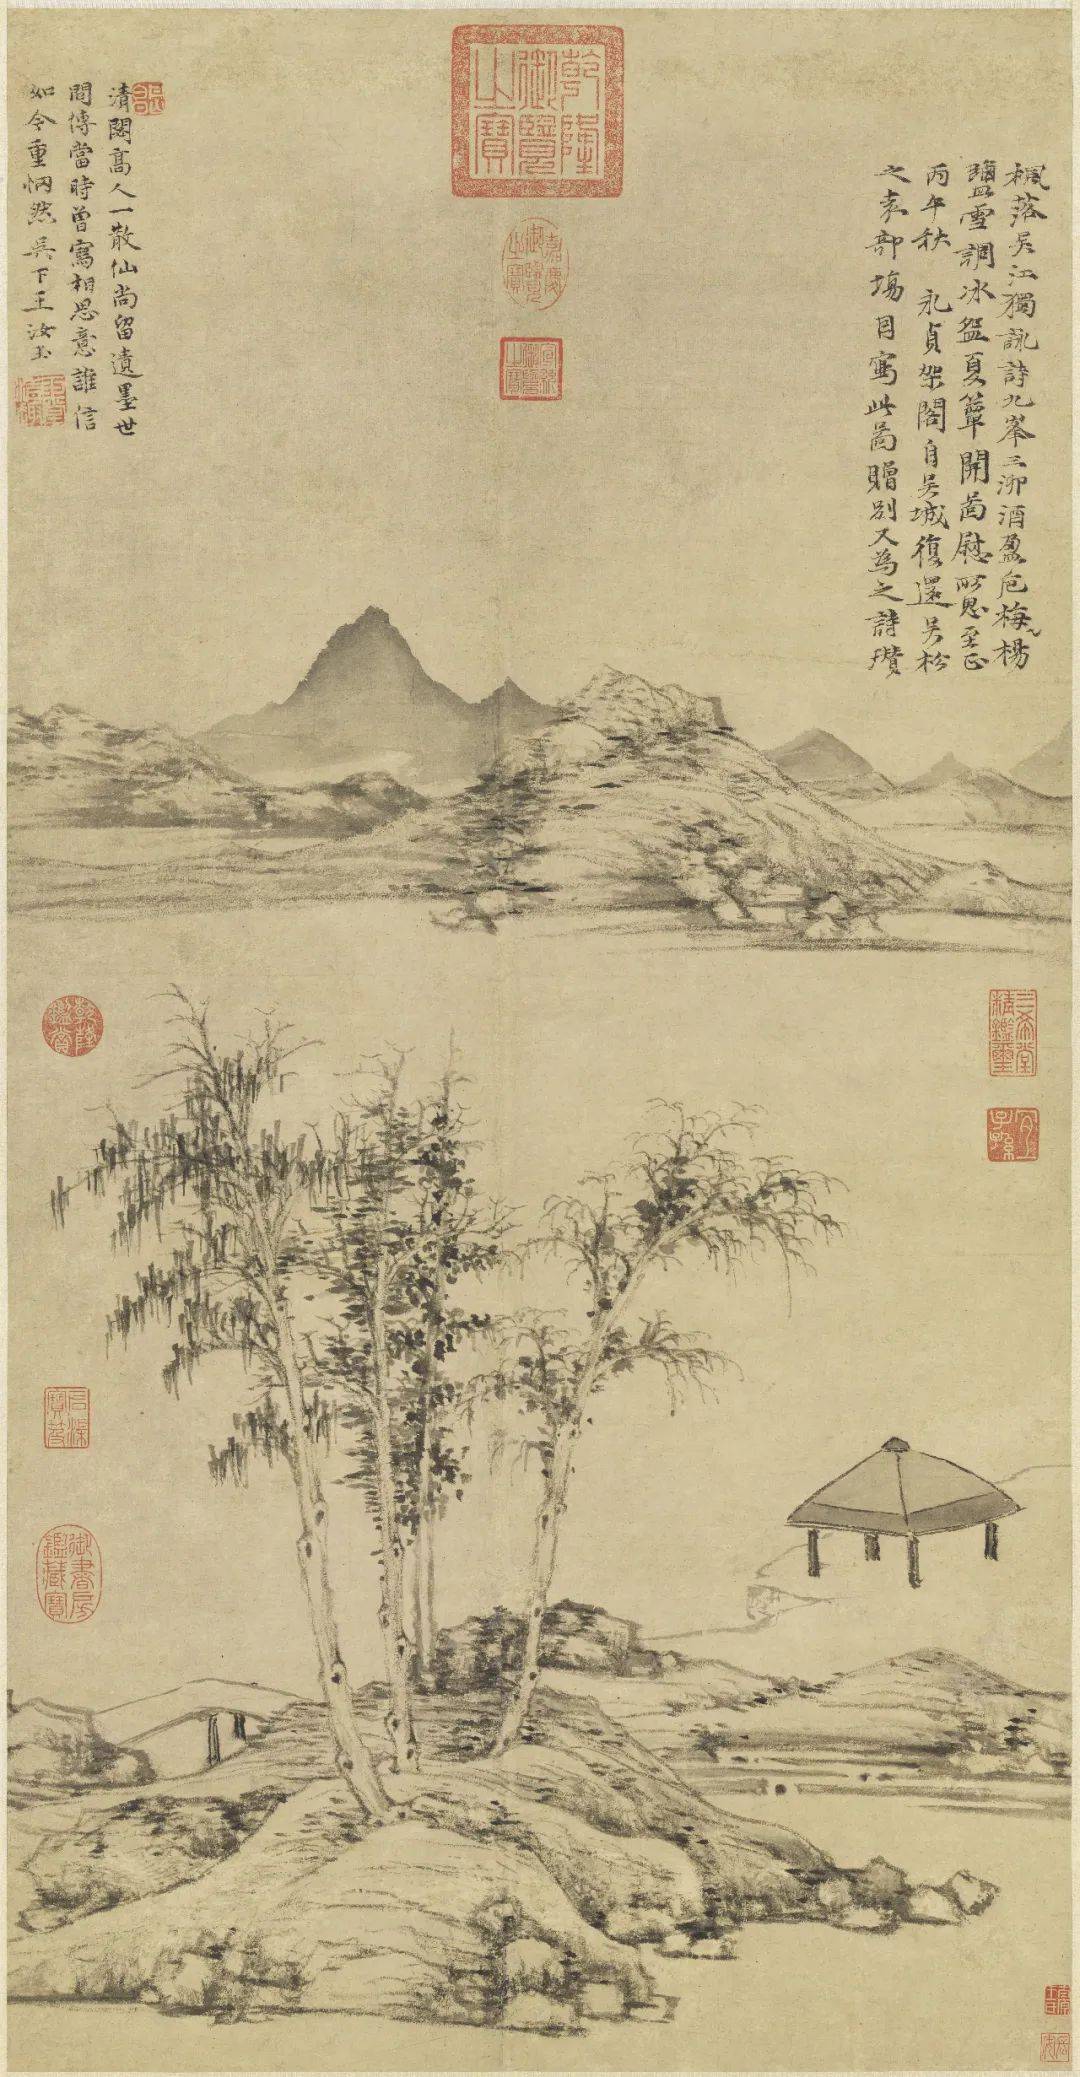 楓落吳江獨詠詩九峯三泖酒盈卮梅楊
鹽雪調冰盌夏簟開啚慰所思至正
丙午秋 永貞架閣自吳城復還吳松
之素部塲因寫此啚贈別又為之詩瓚
清閟高人一散仙尚留遺墨世
間傳當時曾寫相思意誰信
如今重惘然吳下王汝玉
乾隆御覽之寶
嘉慶御覽之寶
宣統御覽之寶
乾隆鑑賞
三希堂精鑑璽
宜子孫
石渠寶笈
御書房鑑藏寶